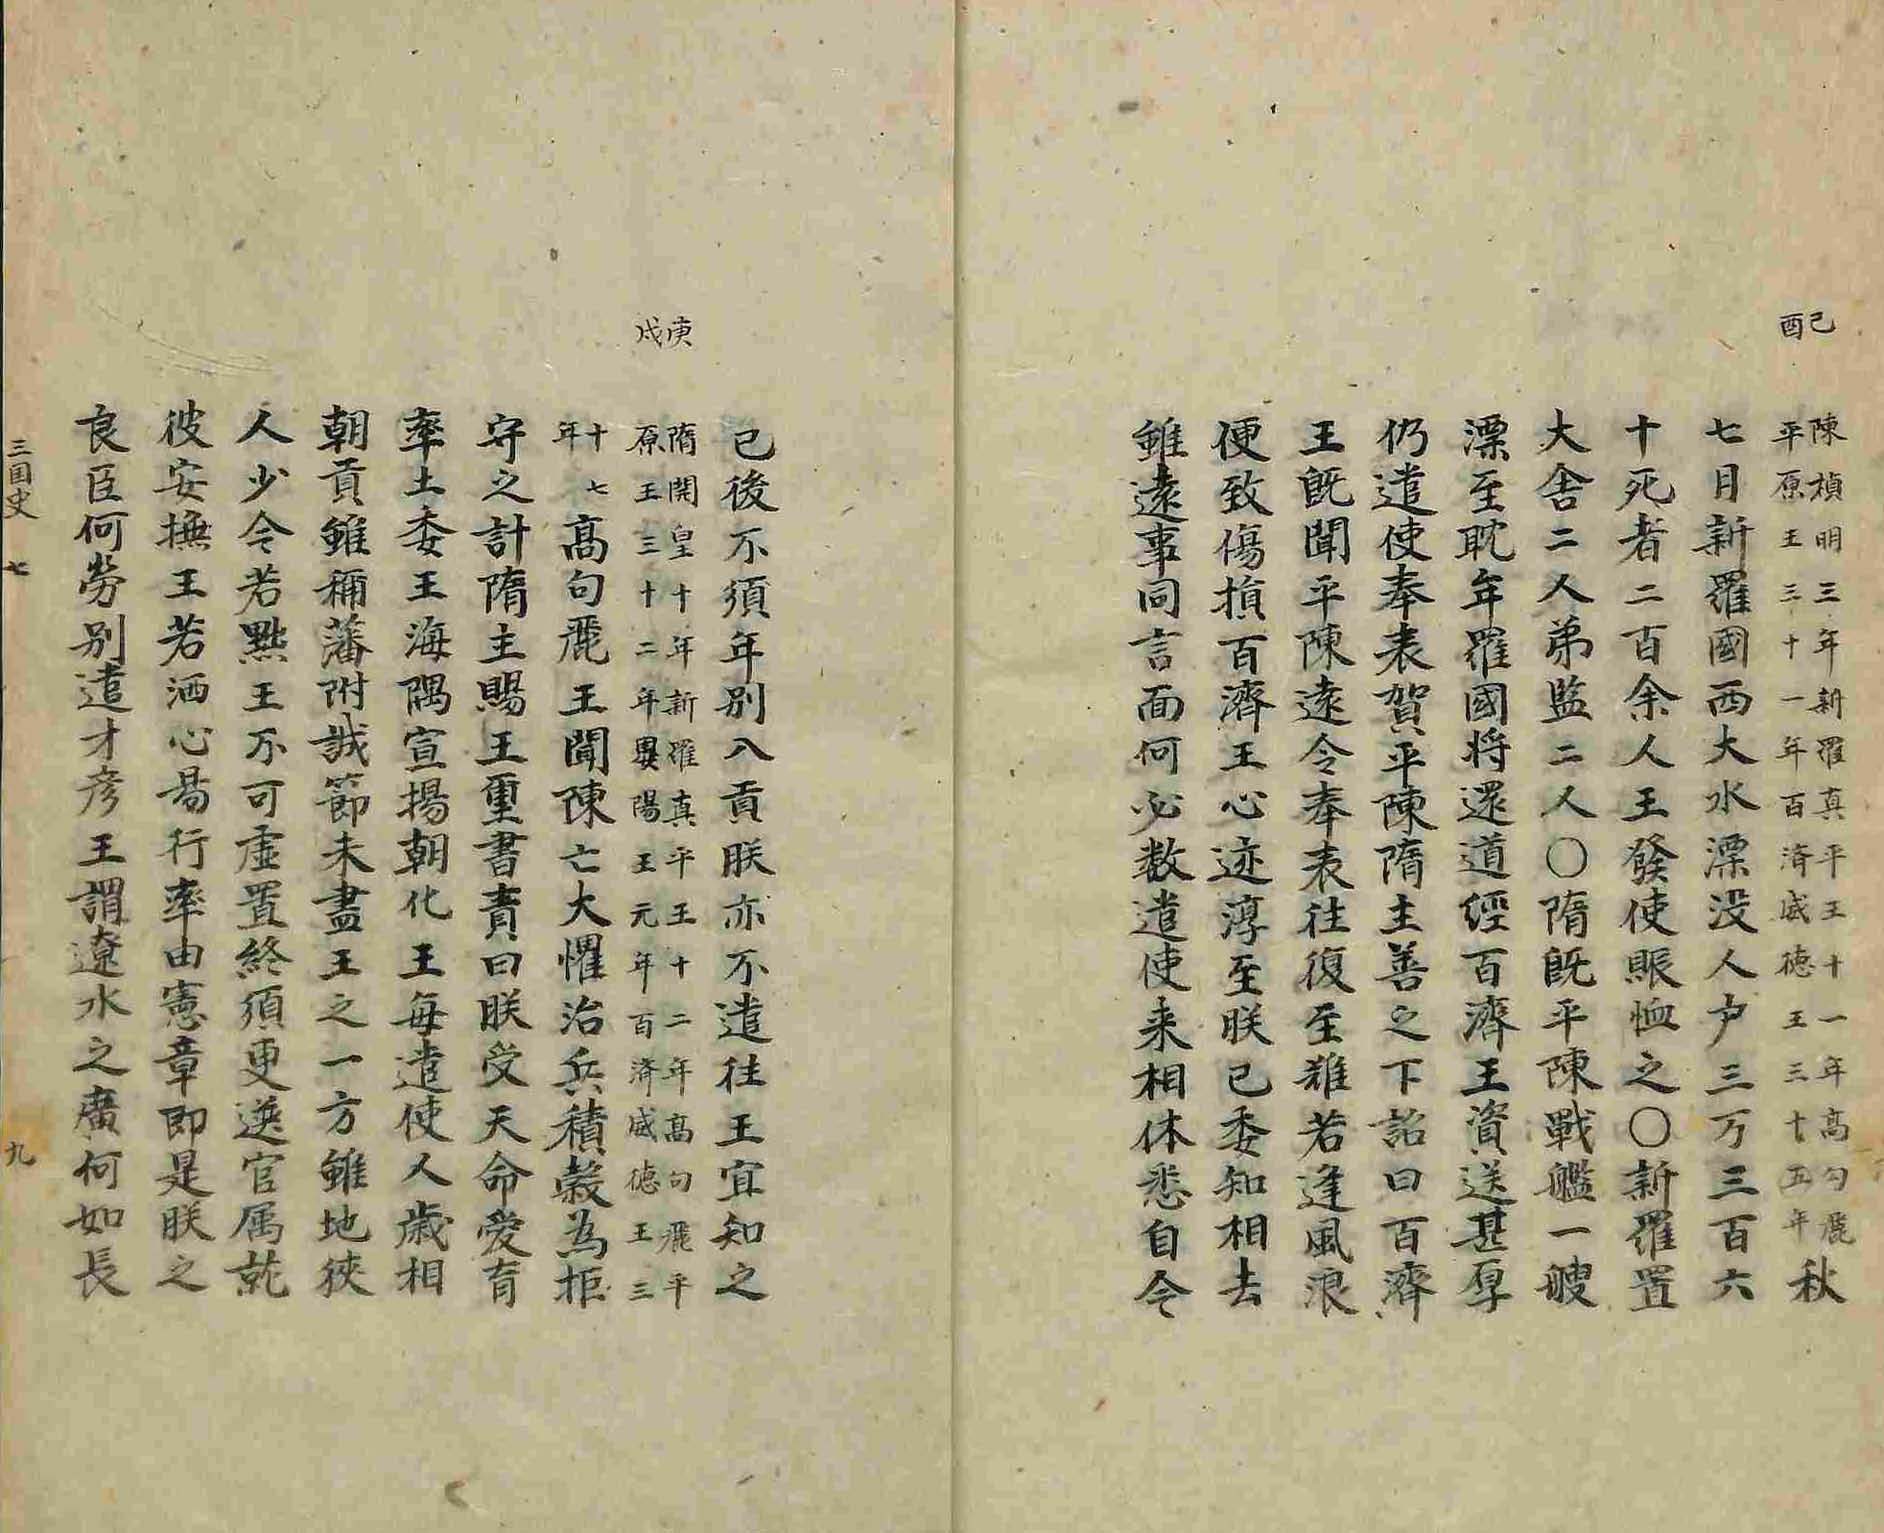 己酉
陳禎明三年新羅真平王十一年高勾麗
平原王三十一年百済威徳王三十五年
秋
七月新羅國西大水漂没人户三万三百六
十死者二百余人王發使賑恤之〇新羅置
大舍二人弟監二人〇隋既平陳戰艦一艘
漂至耽牟羅國将還道經百濟王資送甚厚
仍遣使奉表賀平陳隋主善之下詔曰百濟
王既聞平陳遠令奉表往復至難若逢風浪
便致傷損百濟王心迹淳至朕已委知相去
雖遠事同言面何必数遣使来相体悉自今
已後不須年别入貢朕亦不遣往王宜知之
庚戌
隋開皇十年新羅真平王十二年高句麗平
原王三十二年嬰陽王元年百済威徳王三
十七
年
高句麗王聞陳亡大懼治兵積穀為拒
守之計隋主賜王璽書責曰朕受天命愛育
率土委王海隅宣揚朝化王每遣使人歳相
朝貢雖稱藩附誠節未盡王之一方雖地狹
人少今若黜王不可虚置終須更選官属就
彼安撫王若洒心易行率由憲章即是朕之
良臣何勞别遣才彦王謂遼水之廣何如長
三国史 七
九